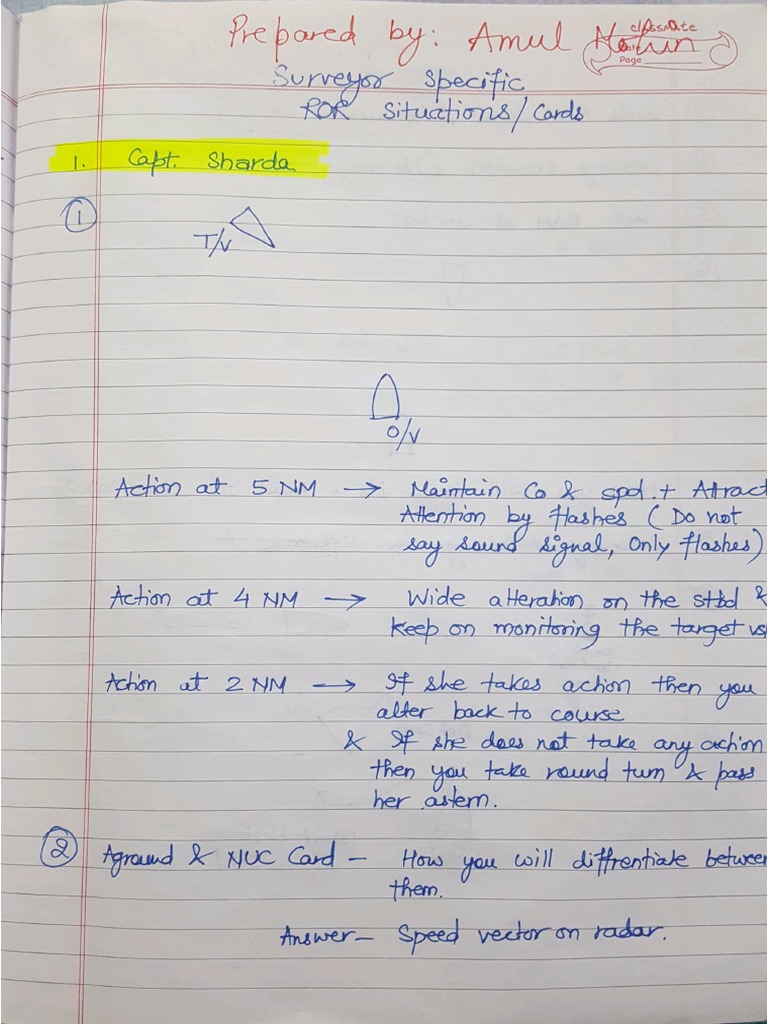 Prepared by: Amul Notun
classmate
Date
Page
Surveyor Specific
ROR Situations/Cards
1. Capt. Sharda
1
T/V
O/V
Action at 5 NM → Maintain Co & spd. + Attract
Attention by flashes (Do not
say sound signal, Only flashes)
Action at 4 NM → Wide alteration on the stbd &
keep on monitoring the target vsl
Action at 2 NM → If she takes action then you
alter back to course
& If she does not take any action
then you take round turn & pass
her astern.
2 Aground & NUC Card - How you will diffrentiate between
them.
Answer- Speed vector on radar.